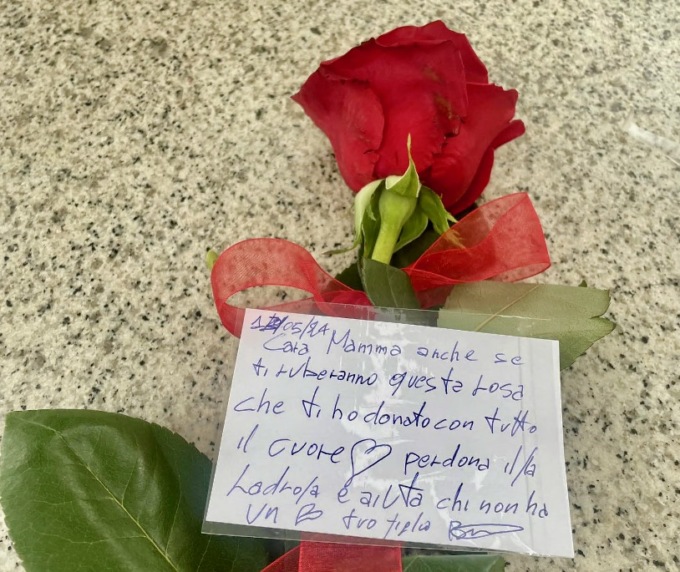 12/05/24
Cara Mamma anche se
ti ruberanno questa rosa
che ti ho donato con tutto
il cuore ♡ perdona il/la
Ladro/a e aiuta chi non ha
un ♡ tuo figlio